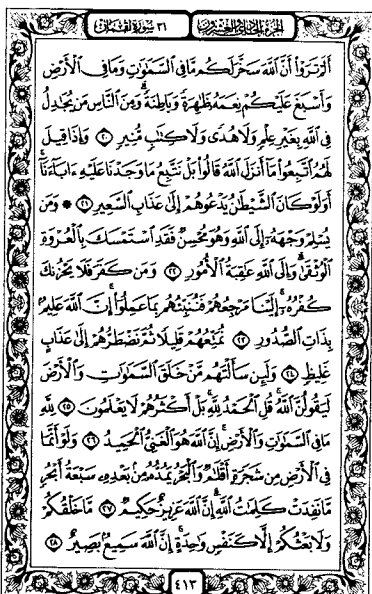 الجزء الحادي والعشرون ٣١ سورة لقمان
أَلَمْ تَرَوْا۟ أَنَّ ٱللَّهَ سَخَّرَ لَكُم مَّا فِى ٱلسَّمَٰوَٰتِ وَمَا فِى ٱلْأَرْضِ
وَأَسْبَغَ عَلَيْكُمْ نِعَمَهُۥ ظَٰهِرَةً وَبَاطِنَةً ۗ وَمِنَ ٱلنَّاسِ مَن يُجَٰدِلُ
فِى ٱللَّهِ بِغَيْرِ عِلْمٍ وَلَا هُدًى وَلَا كِتَٰبٍ مُّنِيرٍ ٢٠ وَإِذَا قِيلَ
لَهُمُ ٱتَّبِعُوا۟ مَآ أَنزَلَ ٱللَّهُ قَالُوا۟ بَلْ نَتَّبِعُ مَا وَجَدْنَا عَلَيْهِ ءَابَآءَنَآ ۚ
أَوَلَوْ كَانَ ٱلشَّيْطَٰنُ يَدْعُوهُمْ إِلَىٰ عَذَابِ ٱلسَّعِيرِ ٢١ ۞ وَمَن
يُسْلِمْ وَجْهَهُۥٓ إِلَى ٱللَّهِ وَهُوَ مُحْسِنٌ فَقَدِ ٱسْتَمْسَكَ بِٱلْعُرْوَةِ
ٱلْوُثْقَىٰ ۗ وَإِلَى ٱللَّهِ عَٰقِبَةُ ٱلْأُمُورِ ٢٢ وَمَن كَفَرَ فَلَا يَحْزُنكَ
كُفْرُهُۥٓ ۚ إِلَيْنَا مَرْجِعُهُمْ فَنُنَبِّئُهُم بِمَا عَمِلُوٓا۟ ۚ إِنَّ ٱللَّهَ عَلِيمٌۢ
بِذَاتِ ٱلصُّدُورِ ٢٣ نُمَتِّعُهُمْ قَلِيلًا ثُمَّ نَضْطَرُّهُمْ إِلَىٰ عَذَابٍ
غَلِيظٍ ٢٤ وَلَئِن سَأَلْتَهُم مَّنْ خَلَقَ ٱلسَّمَٰوَٰتِ وَٱلْأَرْضَ
لَيَقُولُنَّ ٱللَّهُ ۚ قُلِ ٱلْحَمْدُ لِلَّهِ ۚ بَلْ أَكْثَرُهُمْ لَا يَعْلَمُونَ ٢٥ لِلَّهِ
مَا فِى ٱلسَّمَٰوَٰتِ وَٱلْأَرْضِ ۚ إِنَّ ٱللَّهَ هُوَ ٱلْغَنِىُّ ٱلْحَمِيدُ ٢٦ وَلَوْ أَنَّمَا
فِى ٱلْأَرْضِ مِن شَجَرَةٍ أَقْلَٰمٌ وَٱلْبَحْرُ يَمُدُّهُۥ مِنۢ بَعْدِهِۦ سَبْعَةُ أَبْحُرٍ
مَّا نَفِدَتْ كَلِمَٰتُ ٱللَّهِ ۗ إِنَّ ٱللَّهَ عَزِيزٌ حَكِيمٌ ٢٧ مَّا خَلْقُكُمْ
وَلَا بَعْثُكُمْ إِلَّا كَنَفْسٍ وَٰحِدَةٍ ۗ إِنَّ ٱللَّهَ سَمِيعٌۢ بَصِيرٌ ٢٨
٤١٣